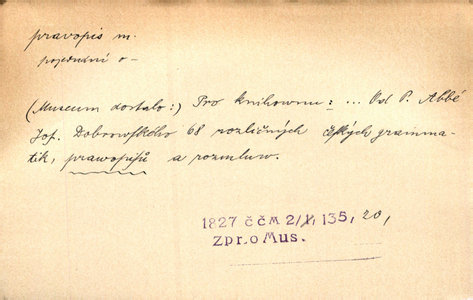 pravopis m.
pojednání o-
(Museum dostalo:) Pro knihownu: ... Od P. Abbé
Jos. Dobrowského 68 rozličných čských gramma-
tik, prawopisů a rozmluw.
1827 ČČM 2/1, 135, 20,
Zpr. o Mus.